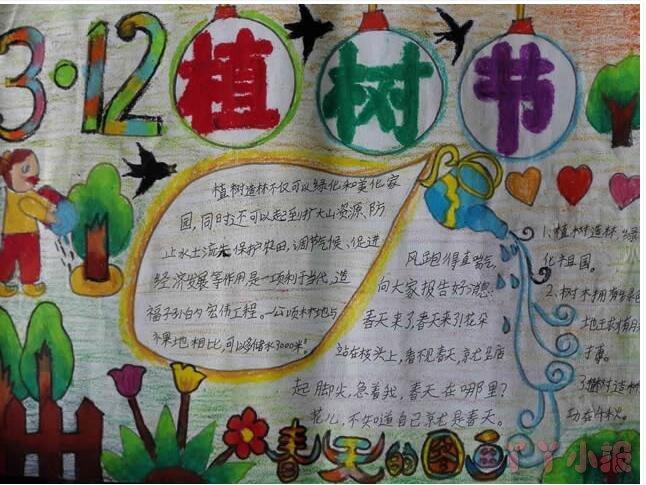 3·12 植树节
植树造林不仅可以绿化和美化家
园,同时还可以起到扩大山资源、防
止水土流失保护农田、调节气候、促进
经济发展等作用,是一项利于当代、造
福子孙的宏伟工程。一公顷林地与
果地相比,可以多储水3000米³
风跑得直喘气,
向大家报告好消息:
春天来了,春天来了!花朵
站在枝头上,看不见春天,就
起脚尖,急着找,春天在哪里?
花儿,不知道自己就是春天。
1、植树造林绿
化祖国。
2、树木拥有
3、植树造林
功在千秋。
春天的图画
丫丫小报